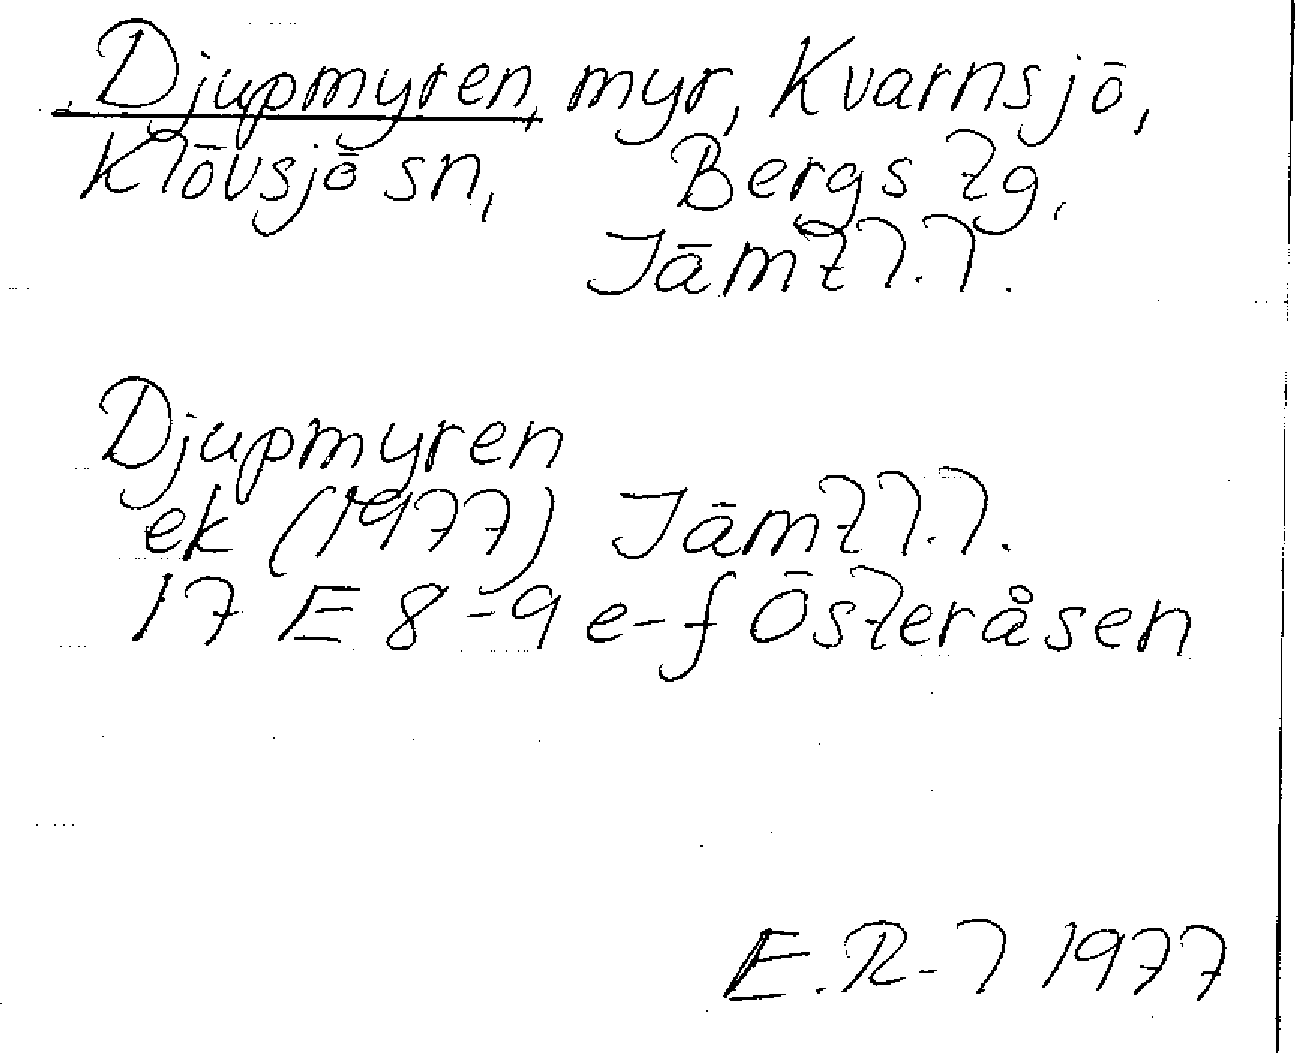 Djupmyren, myr, Kvarnsjö,
Klövsjö sn, Bergs tg,
Jämtl.l.
Djupmyren
ek (1977) Jämtl.l.
17 E 8-9 e-f Österåsen
E.R-l 1977